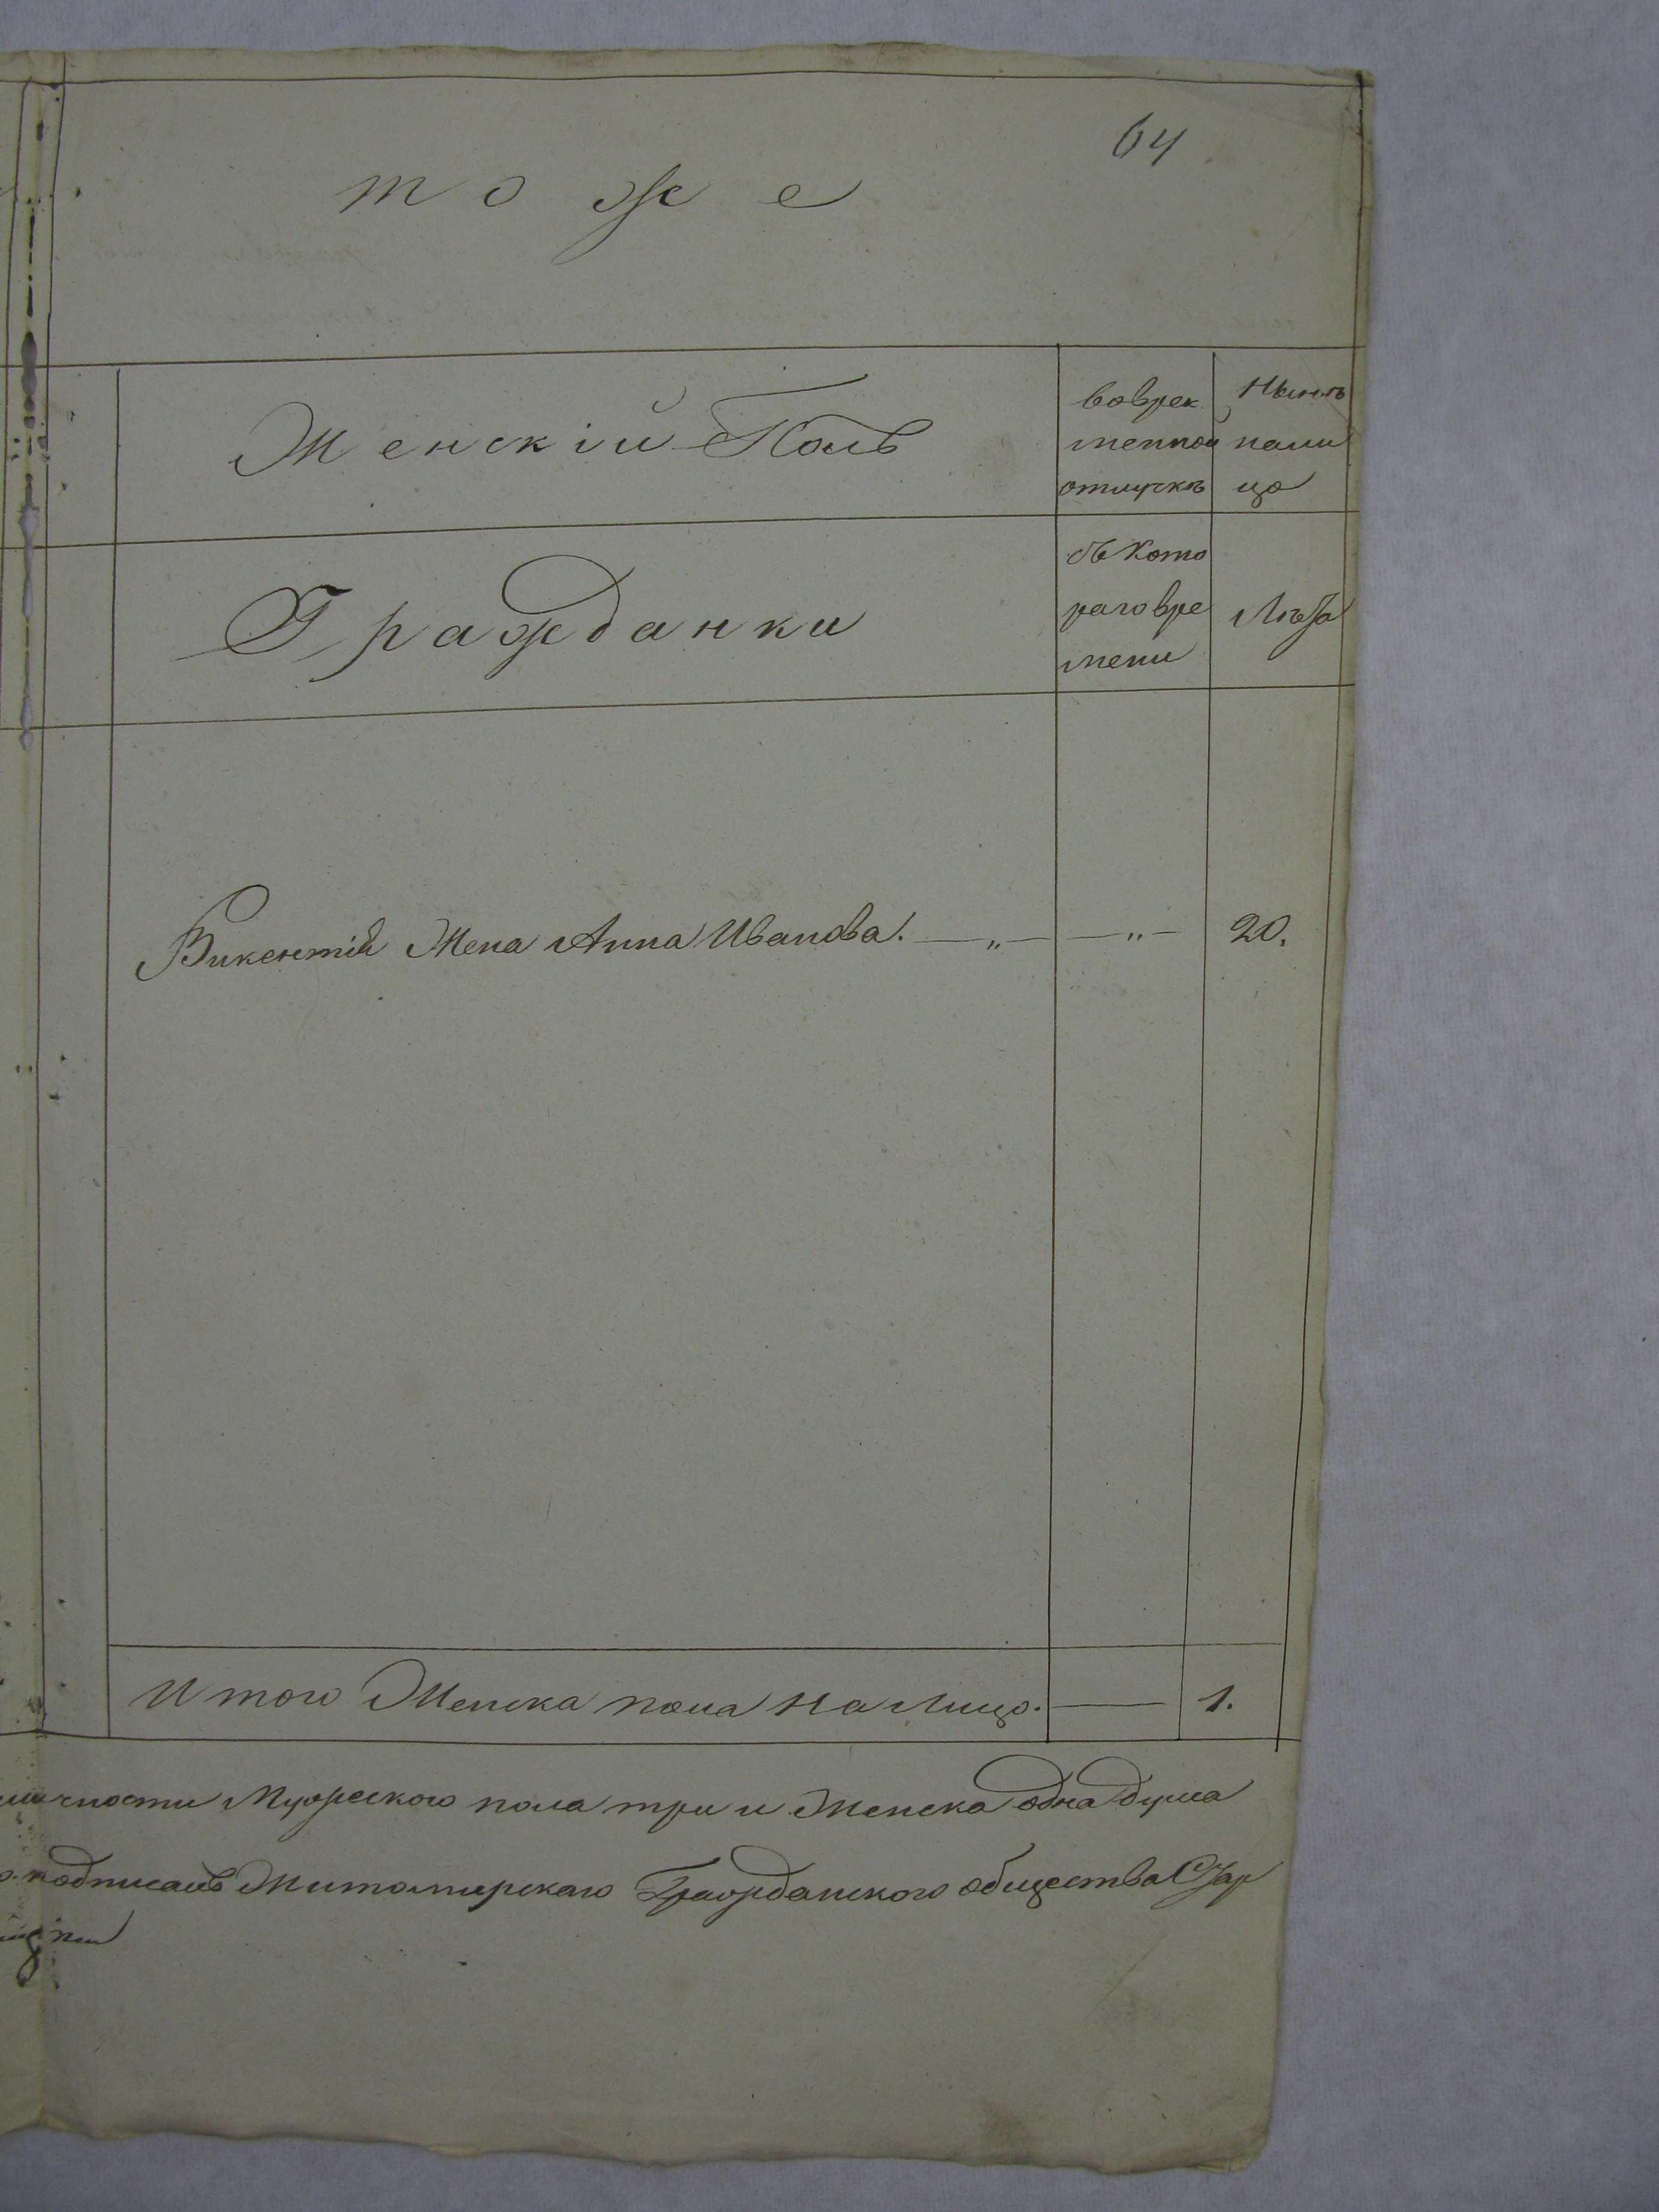 64
тоже
Женскій Полъ
вовремменной отлучкѣ
Нынѣ налицо
Гражданки
съ котораговремени
Лѣта
Викентія Жена Анна Иванова. —„— —„— 20.
Итого Женска пола на Лицо. — 1.
личности Мужеского пола три и Женска одна душа
подписалъ Житомирскаго Гражданского общества Стар